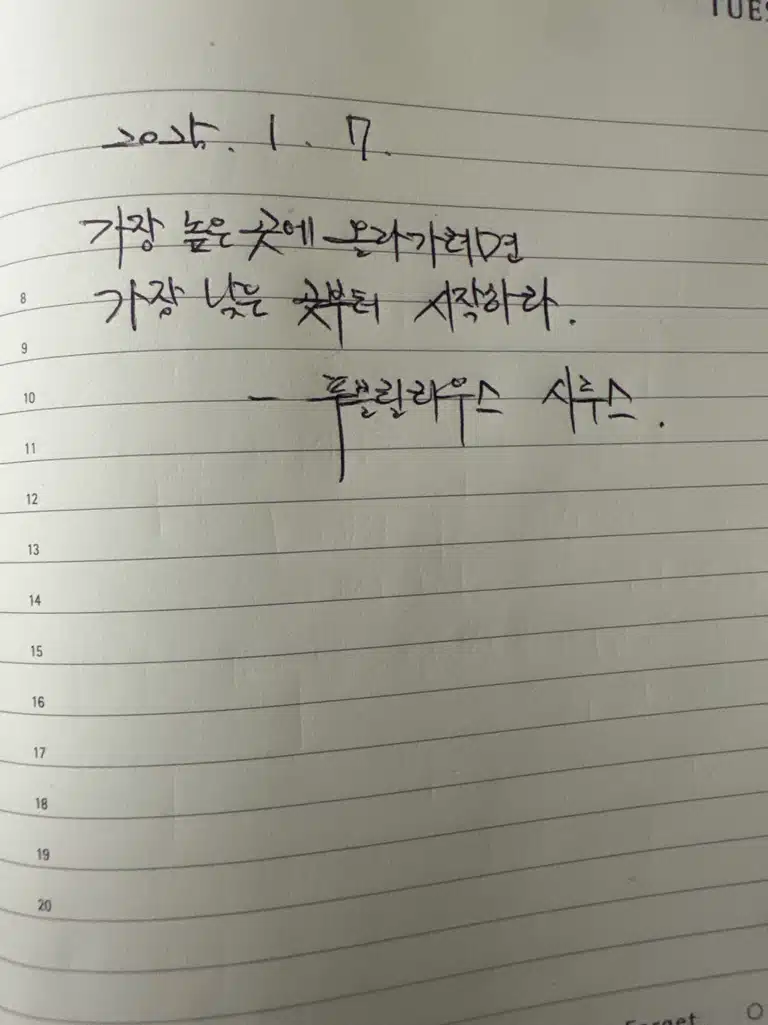 TUES
2025. 1. 7.
가장 높은 곳에 올라가려면
가장 낮은 곳부터 시작하라.
- 푸블릴라우스 시루스.
8
9
10
11
12
13
14
15
16
17
18
19
20